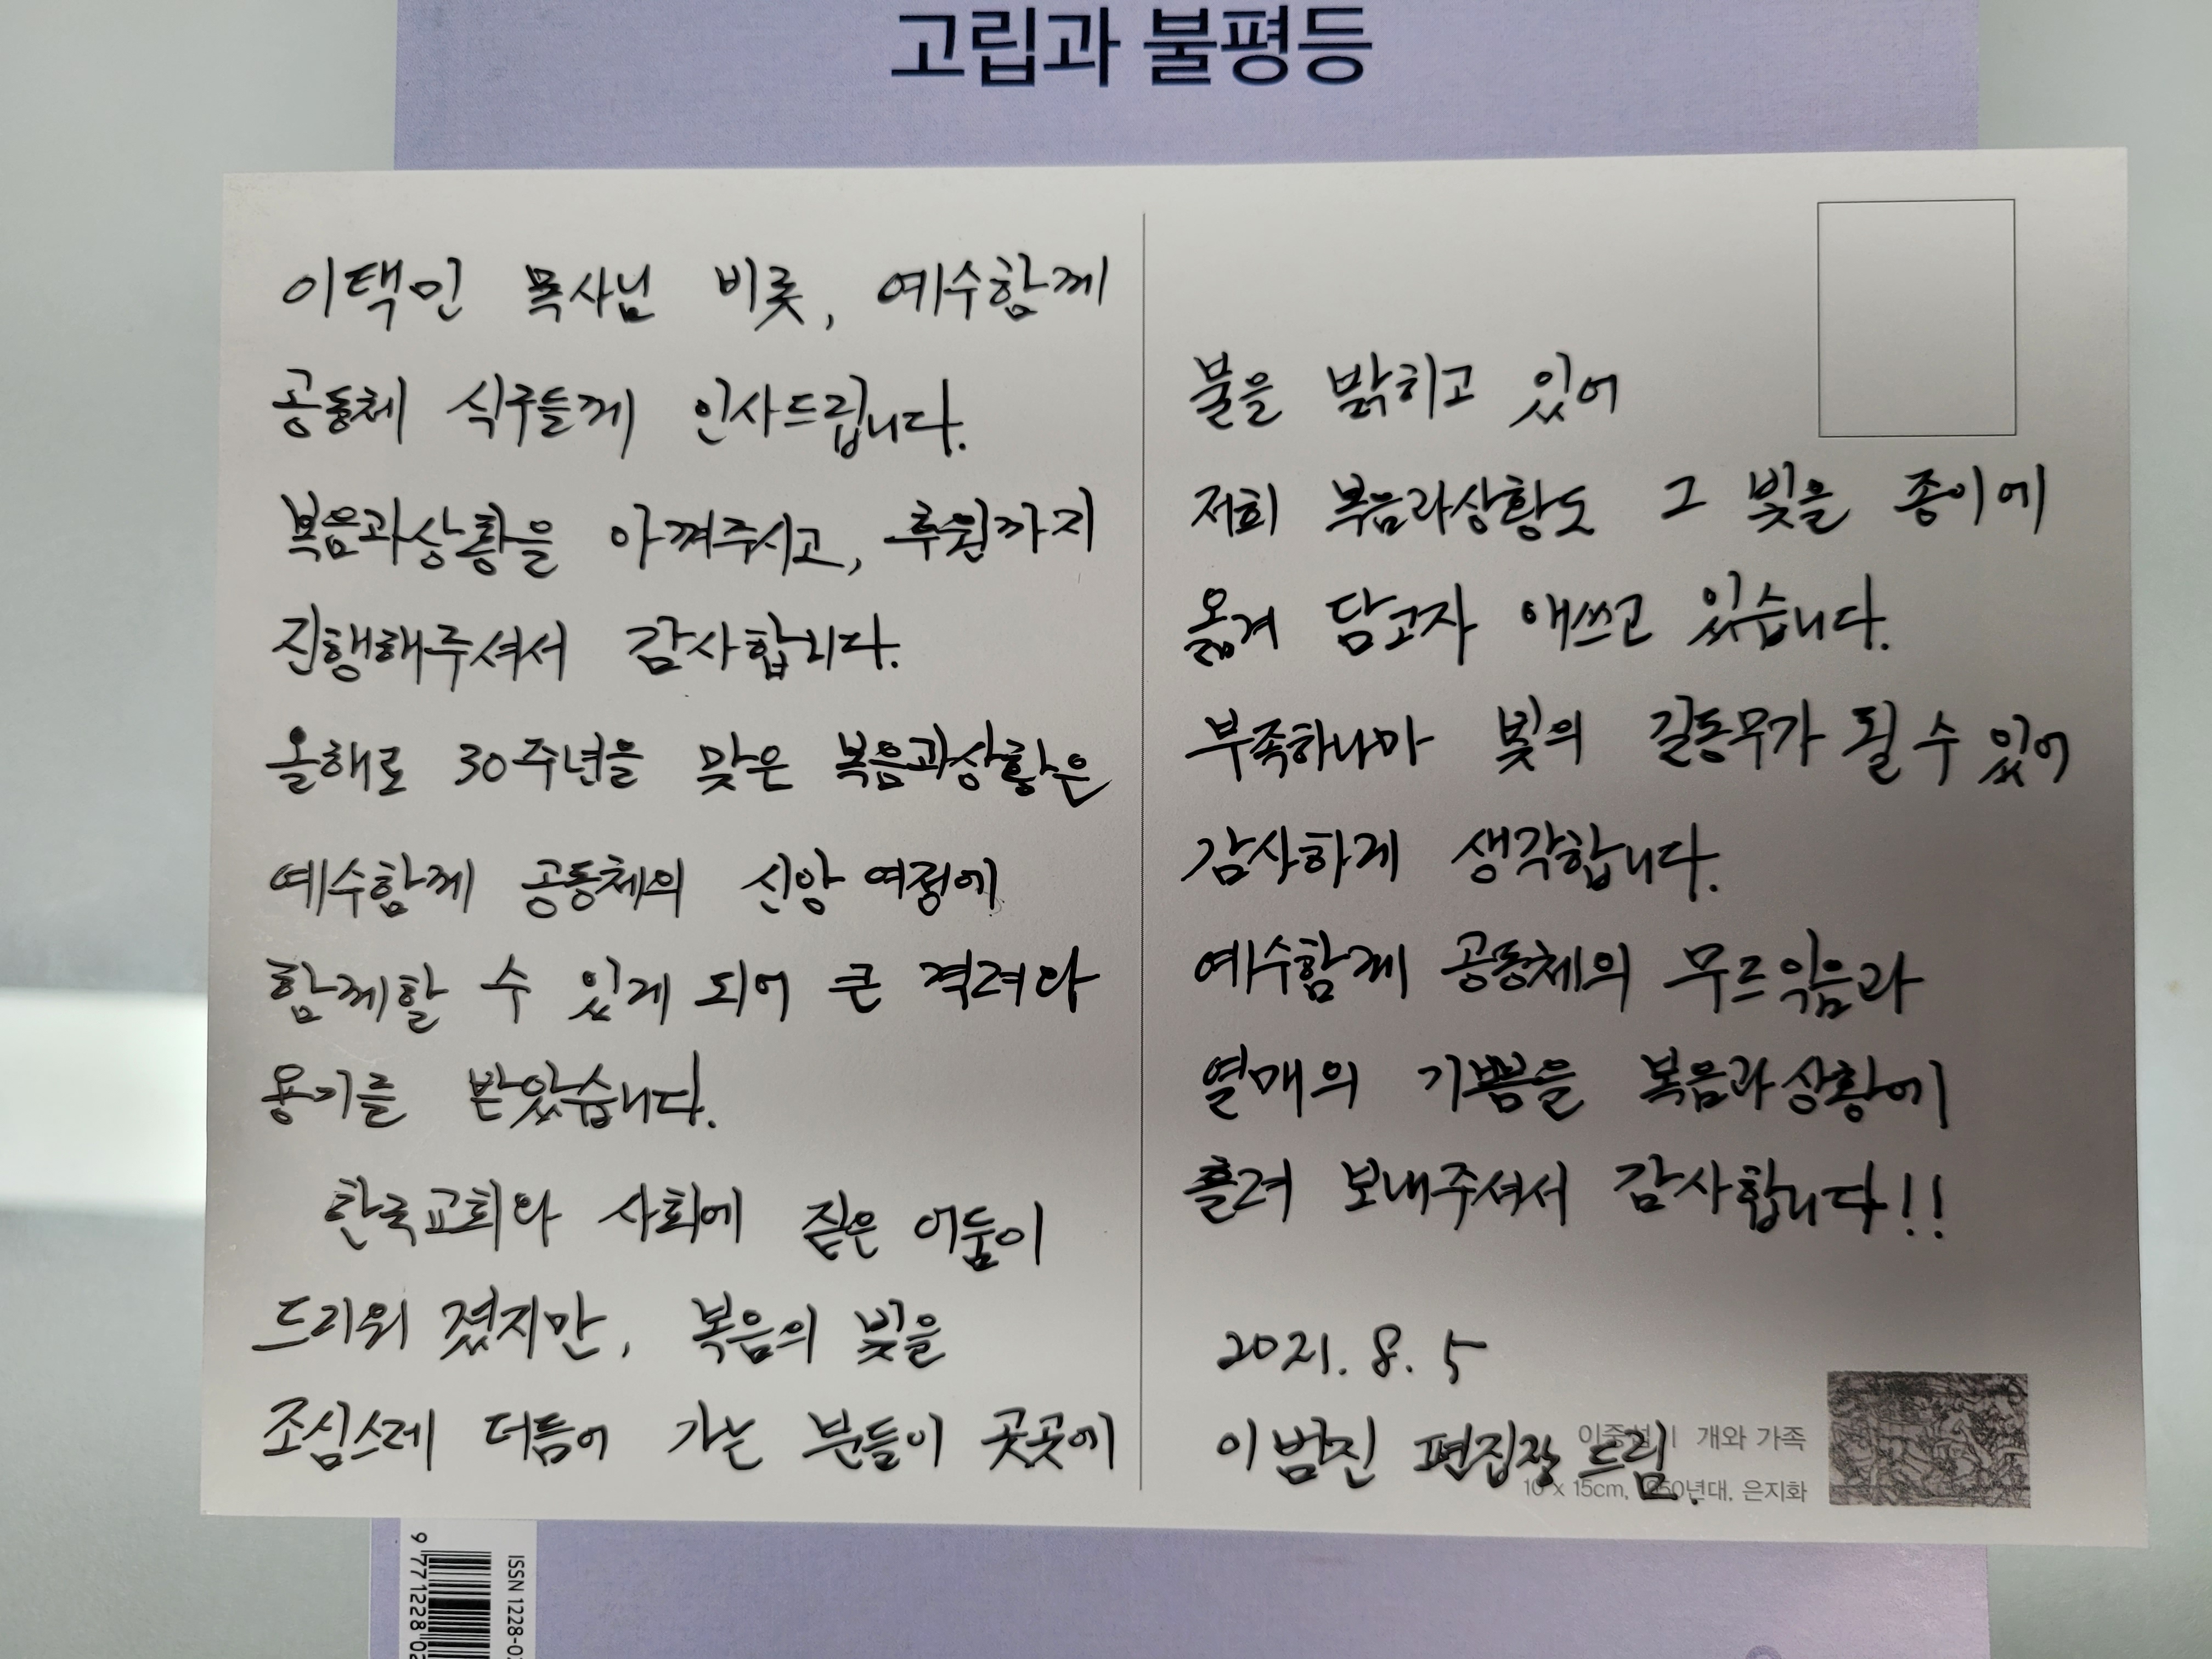 고립과 불평등
이택민 목사님 비롯, 예수함께
공동체 식구들께 인사드립니다.
복음과상황을 아껴주시고, 후원까지
진행해주셔서 감사합니다.
올해로 30주년을 맞은 복음과상황은
예수함께 공동체의 신앙 여정에
함께할 수 있게 되어 큰 격려와
용기를 받았습니다.
한국교회와 사회에 짙은 어둠이
드리워 졌지만, 복음의 빛을
조심스레 더듬어 가는 분들이 곳곳에
불을 밝히고 있어
저희 복음과상황도 그 빛을 종이에
옮겨 담고자 애쓰고 있습니다.
부족하나마 빛의 길동무가 될 수 있어
감사하게 생각합니다.
예수함께 공동체의 무르익음과
열매의 기쁨을 복음과상황에
흘려 보내주셔서 감사합니다!!
2021. 8. 5
이범진 편집장 드림.
이중섭 | 개와 가족
10 x 15cm, 1950년대, 은지화
ISSN 1228-02
9 771228 02